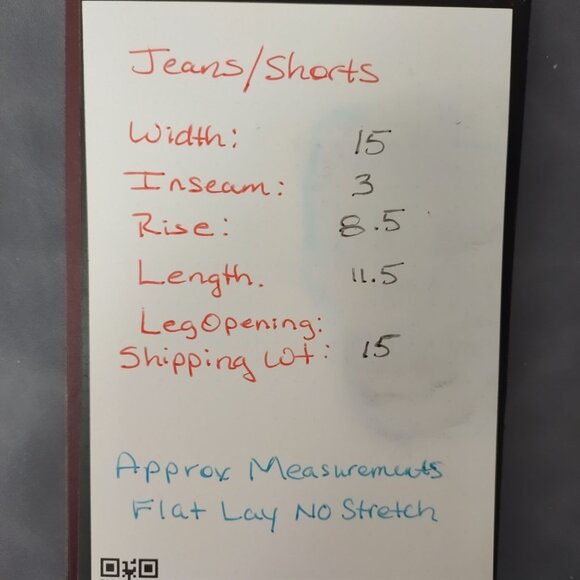 Jeans/Shorts
Width: 15
Inseam: 3
Rise: 8.5
Length. 11.5
Leg Opening:
Shipping Wt: 15
Approx Measurements
Flat Lay No Stretch